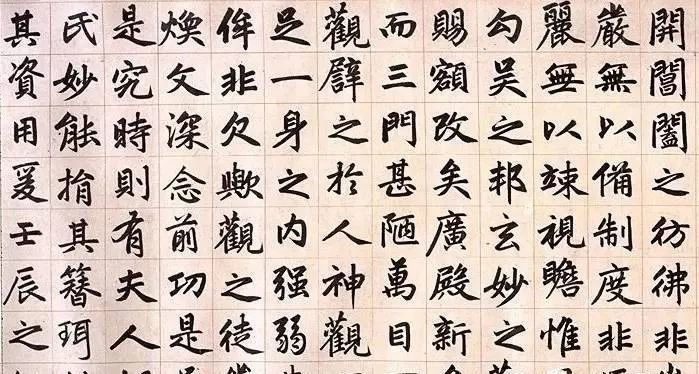 開閶闔之彷彿非
嚴無以備制度非
麗無以竦視瞻惟
勾吳之邦玄妙之
賜額改矣廣殿新
而三門甚陋萬目
觀辟之於人神觀
足一身之内强弱
侔非欠歟觀之徒
煥文深念前功是
是究時則有夫人
氏妙能捐其簪珥
其資用爰壬辰之